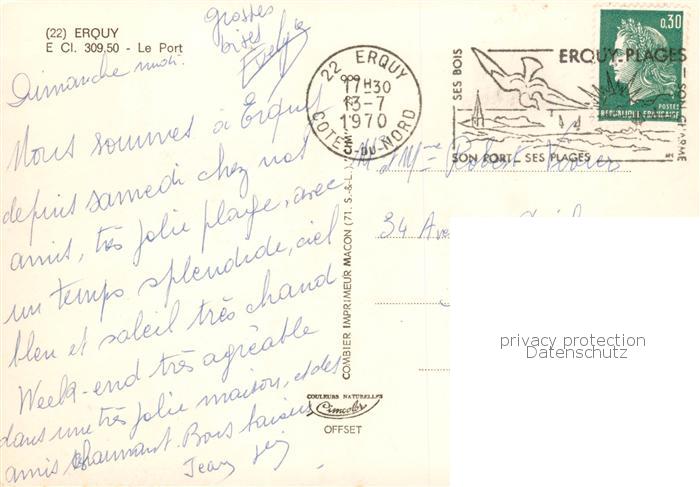 (22) ERQUY
E Cl. 309,50 - Le Port
grosses
bises
Dimanche midi.
Nous sommes à Erquy
depuis samedi chez nos
amis, très jolie plage, avec
un temps splendide, ciel
bleu et soleil très chaud
Week-end très agréable
dans une très jolie maison, et des
amis charmant. Bons baisers
Jean
COMBIER IMPRIMEUR MACON (71. S.-&-L.)
COULEURS NATURELLES
Cimcolor
OFFSET
22 ERQUY
17H30
13-7
1970
COTES-DU-NORD
SES BOIS
ERQUY-PLAGES
SON PORT - SES PLAGES
0,30
POSTES
REPUBLIQUE FRANÇAISE
M et Mme Robert
34 Ave
privacy protection
Datenschutz